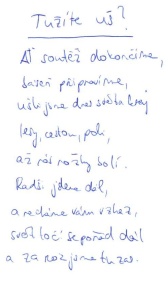 Tužíte už?
Ať soutěž dokončíme,
báseň připravíme,
ušli jsme dnes světa kraj
lesy, cestou, poli,
až nás nožky bolí.
Radši jdeme dál,
a nedáme vám vzkaz,
svět točí se pořád dál
a za rok jsme tu zas.